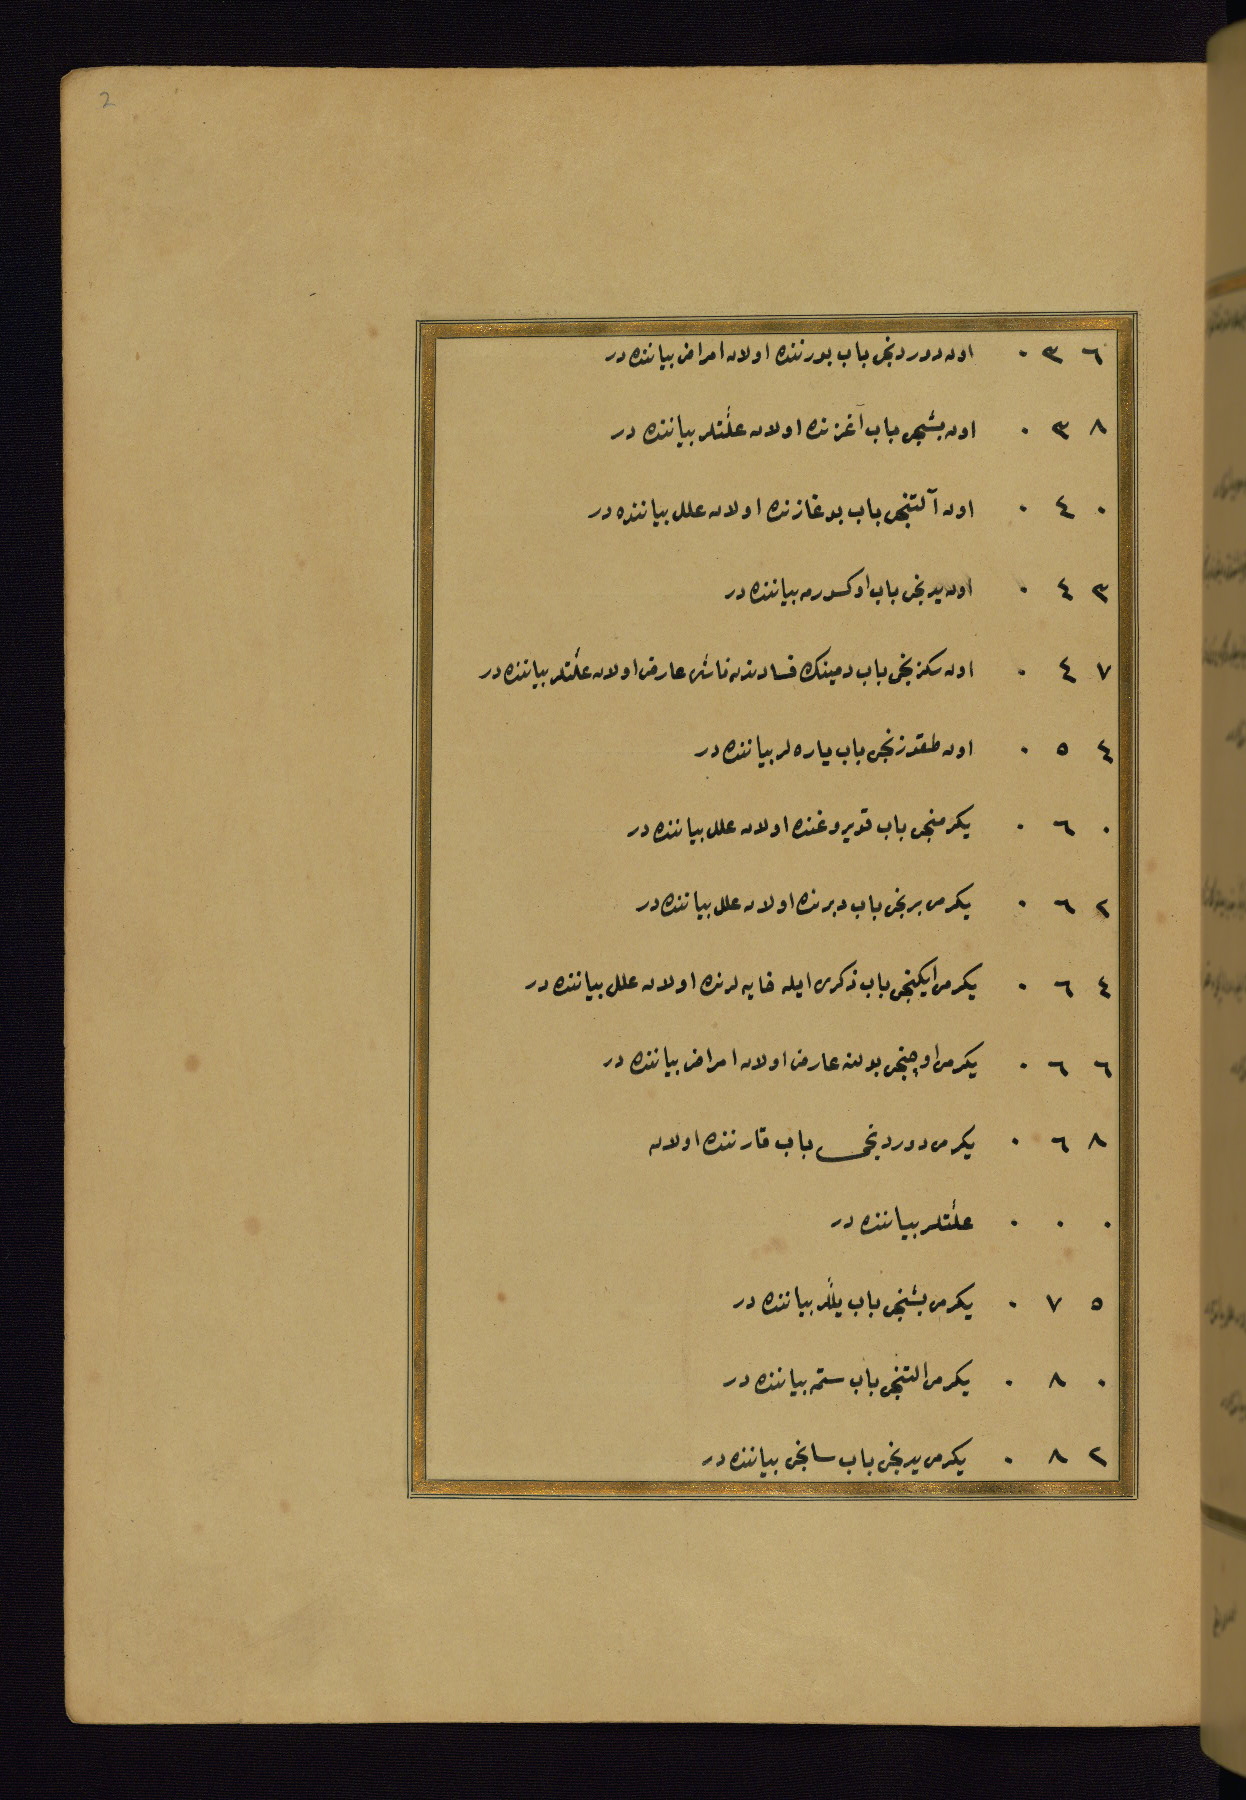 2
٠٣٦ اون دوردنجی باب بورننده اولان امراض بیاننده در
٠٣٨ اون بشنجی باب آغزنده اولان علّتلر بیاننده در
٠٤٠ اون آلتنجی باب بوغازنده اولان علل بیاننده در
٠٤٣ اون یدنجی باب اوکسورمه بیاننده در
٠٤٧ اون سکزنجی باب دمینک فسادندن ناشی عارض اولان علّتلر بیاننده در
٠٥٤ اون طقوزنجی باب یاره لر بیاننده در
٠٦٠ یکرمنجی باب قویروغنده اولان علل بیاننده در
٠٦٢ یکرمی برنجی باب دبرنده اولان علل بیاننده در
٠٦٤ یکرمی ایکنجی باب ذکری ایله خایه لرنده اولان علل بیاننده در
٠٦٦ یکرمی اوچنجی بولنه عارض اولان امراض بیاننده در
٠٦٨ یکرمی دوردنجی باب قارننده اولان
٠٠٠ علّتلر بیاننده در
٠٧٥ یکرمی بشنجی باب یلّلر بیاننده در
٠٨٠ یکرمی التنجی باب ستمه بیاننده در
٠٨٢ یکرمی یدنجی باب سانجی بیاننده در